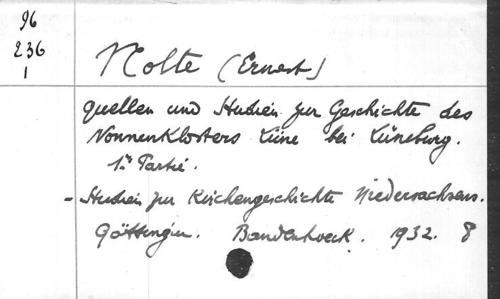 96
236
1
Nolte (Ernest)
Quellen und Studien zur Geschichte des
Nonnenklosters Lüne bei Lüneburg.
1re Partie.
- Studien zur Kirchengeschichte Niedersachsens.
Göttingen. Bandenhoeck. 1932. 8